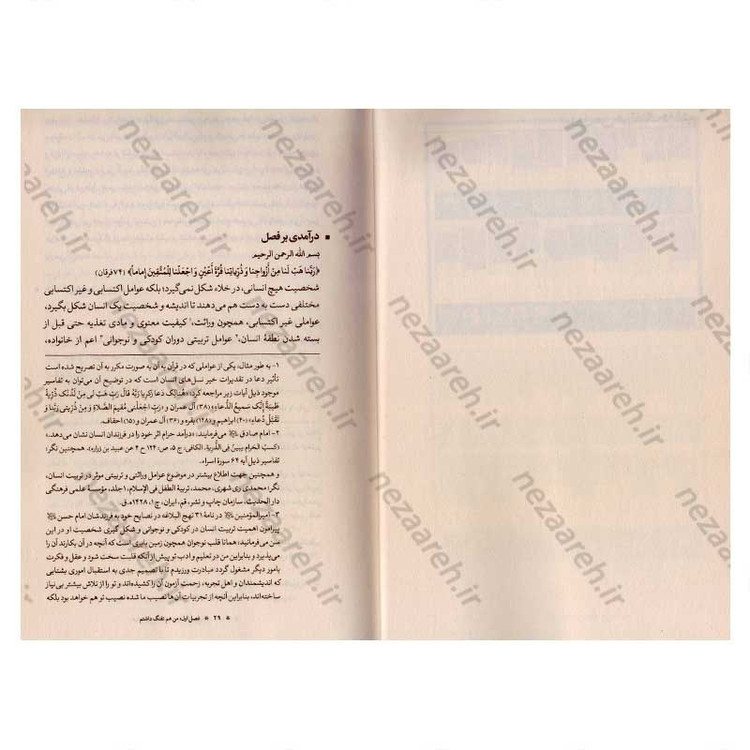 درآمدی بر فصل
بسم الله الرحمن الرحیم
﴿رَبَّنا هَبْ لَنا مِنْ أَزْواجِنا وَ ذُرِّیاتِنا قُرَّةَ أَعْیُنٍ وَ اجْعَلْنا لِلْمُتَّقینَ إِماماً﴾ (۷۴فرقان)
شخصیت هیچ انسانی، در خلاء شکل نمی‌گیرد؛ بلکه عوامل اکتسابی و غیر اکتسابی
مختلفی دست به دست هم می‌دهند تا اندیشه و شخصیت یک انسان شکل بگیرد،
عواملی غیر اکتسابی، همچون وراثت،¹ کیفیت معنوی و مادی تغذیه حتی قبل از
بسته شدن نطفهٔ انسان،² عوامل تربیتی دوران کودکی و نوجوانی³ اعم از خانواده،
۱- به طور مثال، یکی از عواملی که در قرآن به آن به صورت مکرر به آن تصریح شده است
تأثیر دعا در تقدیرات خیر نسل‌های انسان است که در توضیح آن می‌توان به تفاسیر
موجود ذیل آیات زیر مراجعه کرد: «هُنالِکَ دَعا زَکَرِیّا رَبَّهُ قالَ رَبِّ هَبْ لی مِنْ لَدُنْکَ ذُرِّیَّةً
طَیِّبَةً إِنَّکَ سَمیعُ الدُّعاءِ» (۳۸) آل عمران و «رَبِّ اجْعَلْنی مُقیمَ الصَّلاةِ وَ مِنْ ذُرِّیَّتی رَبَّنا وَ
تَقَبَّلْ دُعاءِ» (۴۰) ابراهیم و (۱۲۸) بقره و (۳۶) آل عمران و (۱۵) احقاف.
۲- امام صادق می‌فرمایند: «درآمد حرام اثر خود را در فرزندان انسان نشان می‌دهد.»
«کَسبُ الحَرامِ یَبینُ فِی الذُّرِّیَةِ. الکافی، ج ۵، ص: ۱۲۴ ح ۴ عن عبید بن زراره). همچنین نگر:
تفاسیر ذیل آیه ۶۴ سورهٔ اسراء.
و همچنین جهت اطلاع بیشتر در موضوع عوامل وراثتی و تربیتی موثر در تربیت انسان،
نگر: محمدی ری شهری، محمد، تربیة الطفل فی الإسلام، ۱جلد، مؤسسهٔ علمی فرهنگی
دار الحدیث، سازمان چاپ و نشر، قم، ایران، چ ۱، ۱۴۲۸ه.ق.
۳- امیرالمؤمنین در نامهٔ ۳۱ نهج البلاغه در نصایح خود به فرزندشان امام حسن
پیرامون اهمیت تربیت انسان در کودکی و نوجوانی و شکل گیری شخصیت او در این
سن می‌فرمایند: همانا قلب نوجوان همچون زمین بایری است که آنچه در آن بکارند آن را
می‌پذیرد و بنابراین من در تعلیم و ادب تو پیش از آنکه قلبت سخت شود و عقل و فکرت
بامور دیگر مشغول گردد مبادرت ورزیدم تا با تصمیم جدی به استقبال اموری بشتابی
که اندیشمندان و اهل تجربه، زحمت آزمون آن را کشیده‌اند و تو را از تلاش بیشتر بی‌نیاز
ساخته‌اند، بنابراین آنچه از تجربیات آن‌ها نصیب ما شده نصیب تو هم خواهد بود بلکه
۲۶ * فصل اول: من هم تفنگ داشتم
nezaareh.ir
nezaareh.ir
nezaareh.ir
nezaareh.ir
nezaareh.ir
nezaareh.ir